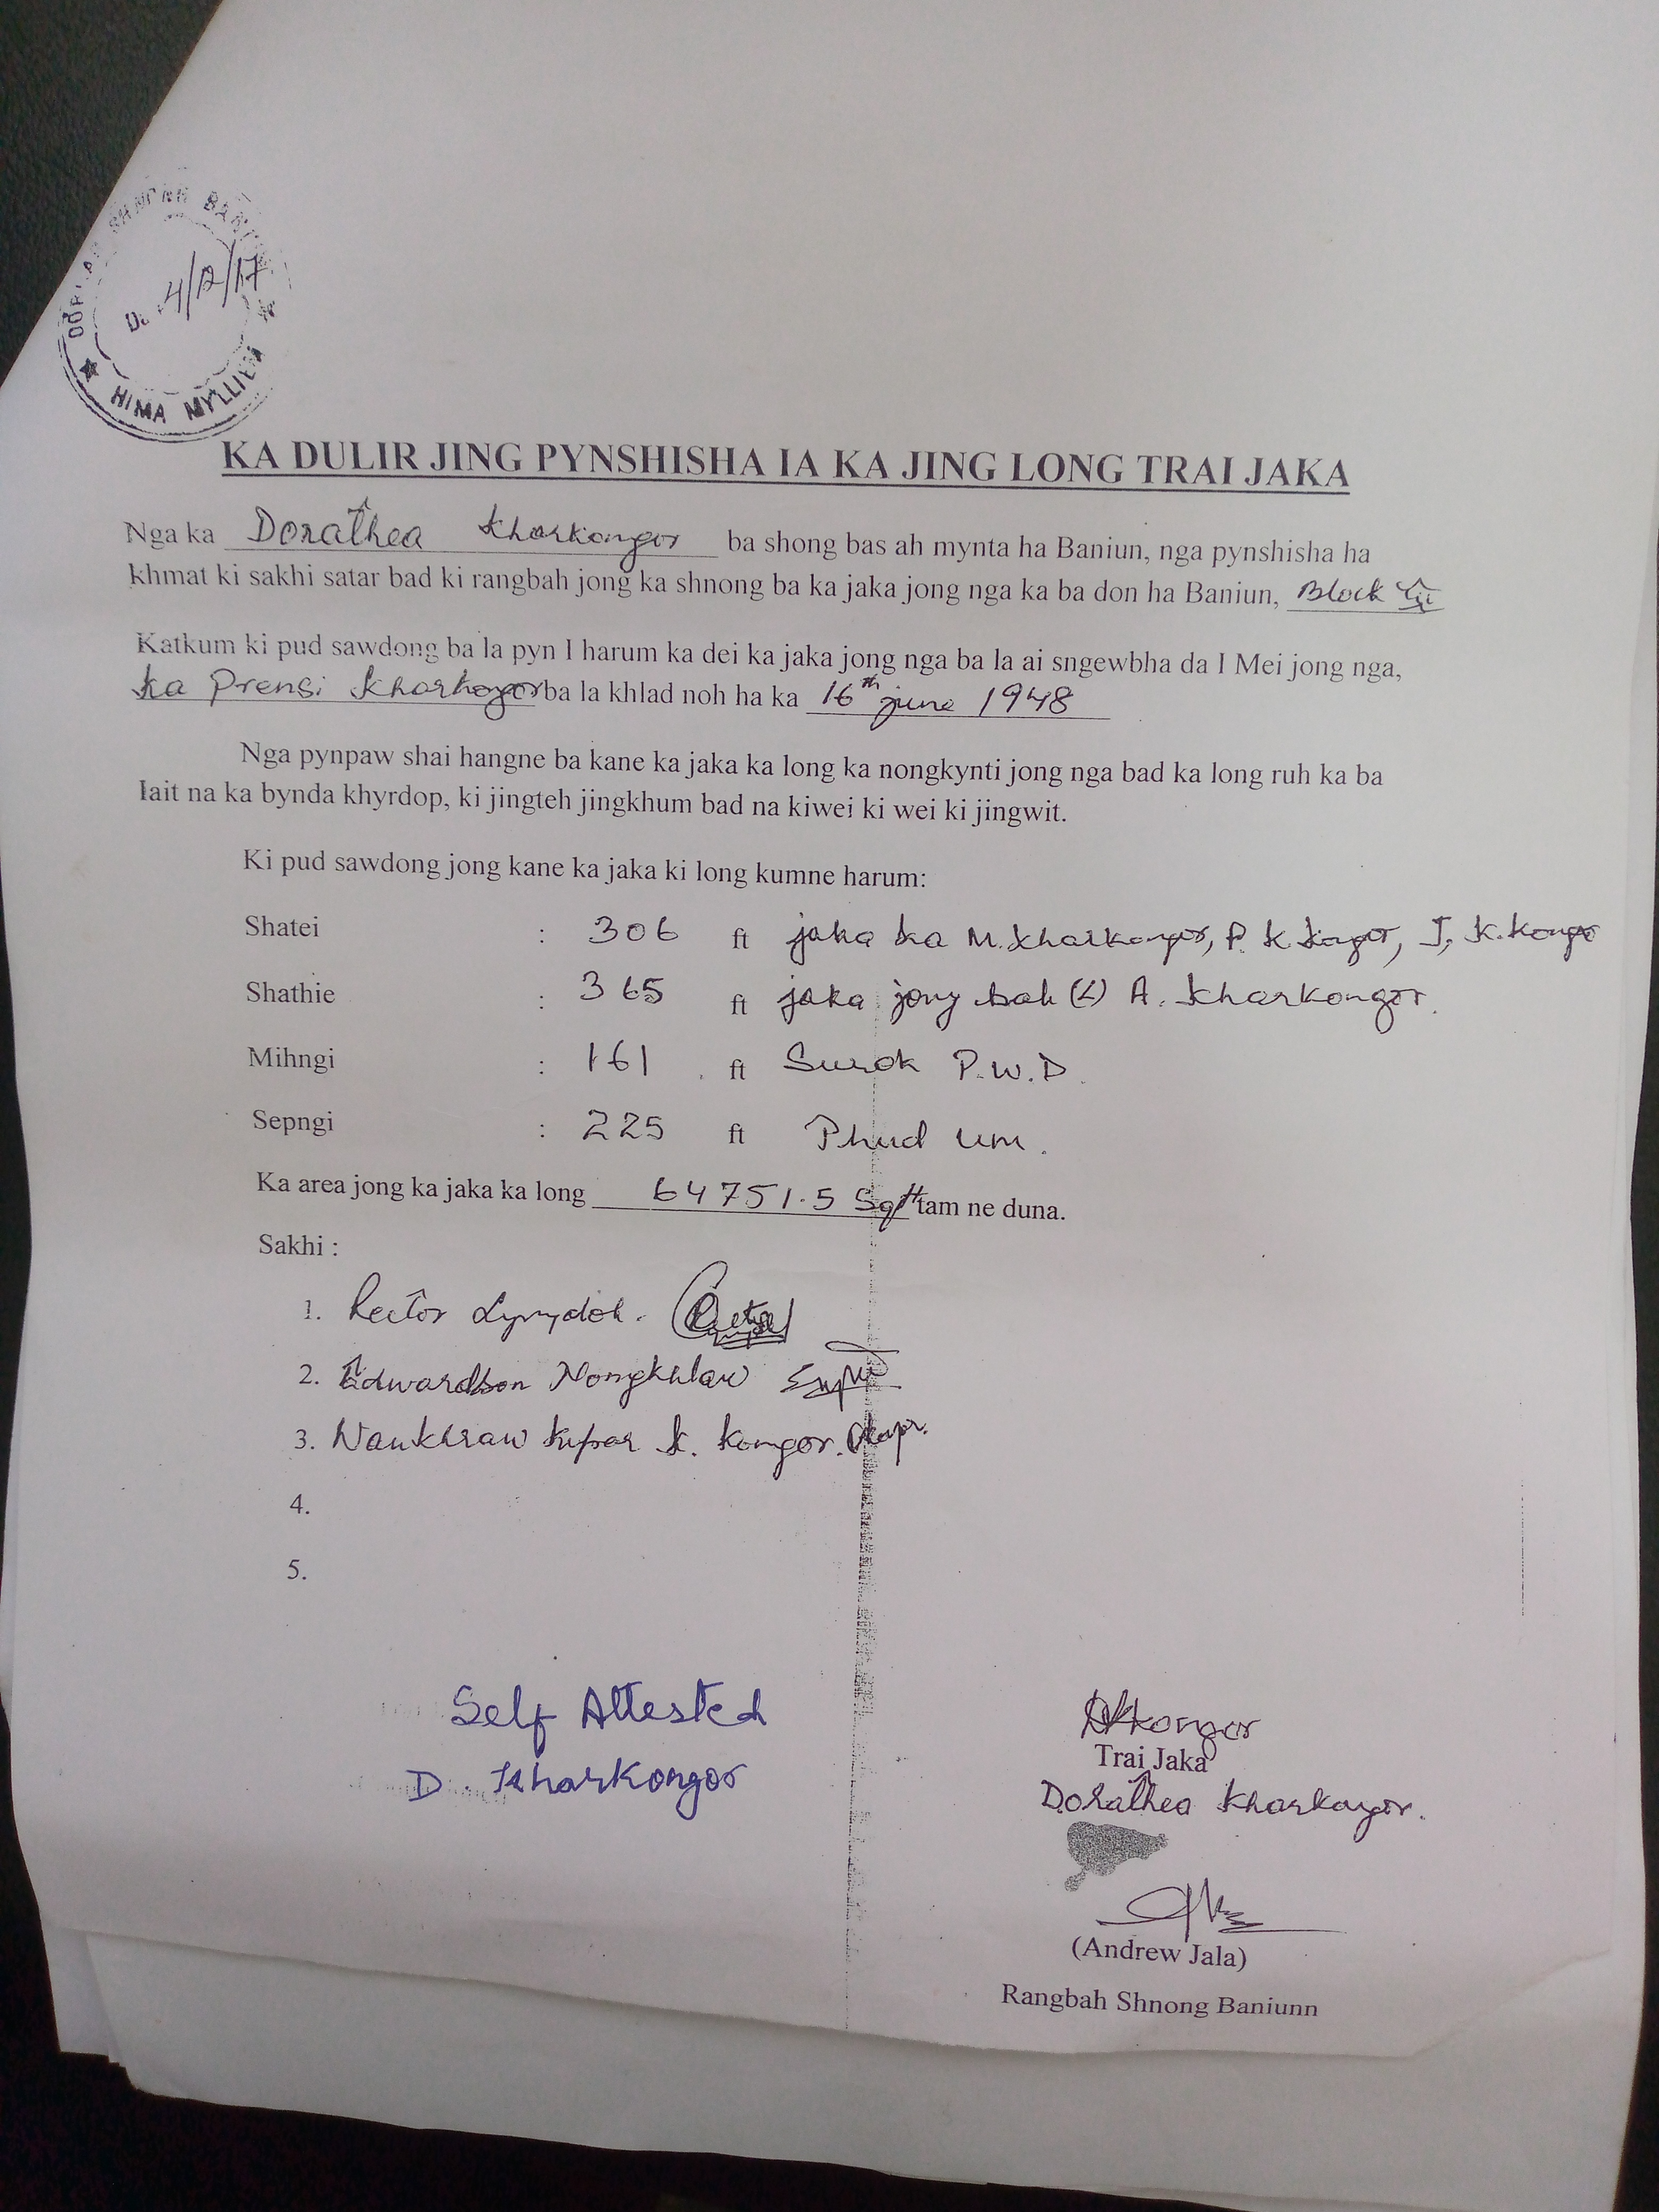 SHNONG BAN
4/12/17
HIMA MYLLIEM
KA DULIR JING PYNSHISHA IA KA JING LONG TRAI JAKA
Nga ka Dorathea Kharkongor ba shong bas ah mynta ha Baniun, nga pynshisha ha
khmat ki sakhi satar bad ki rangbah jong ka shnong ba ka jaka jong nga ka ba don ha Baniun, Block III
Katkum ki pud sawdong ba la pyn I harum ka dei ka jaka jong nga ba la ai sngewbha da I Mei jong nga,
ka Prensi Kharkongor ba la khlad noh ha ka 16th june 1948
Nga pynpaw shai hangne ba kane ka jaka ka long ka nongkynti jong nga bad ka long ruh ka ba
lait na ka bynda khyrdop, ki jingteh jingkhum bad na kiwei ki wei ki jingwit.
Ki pud sawdong jong kane ka jaka ki long kumne harum:
Shatei : 306 ft jaka ka M. Kharkongor, P. K. Kongor, I, K. Kongor
Shathie : 365 ft jaka jong bah (L) A. Kharkongor.
Mihngi : 161 ft Surok P.W.D.
Sepngi : 225 ft Phud um.
Ka area jong ka jaka ka long 64751.5 Sqft tam ne duna.
Sakhi :
1. Rector Lyngdoh.
2. Edwardson Nongkhlaw
3. Nankhraw Kupar K. Kongor.
4.
5.
Self Attested
D. Kharkongor
DKkongor
Trai Jaka
Dorathea Kharkongor.
(Andrew Jala)
Rangbah Shnong Baniunn